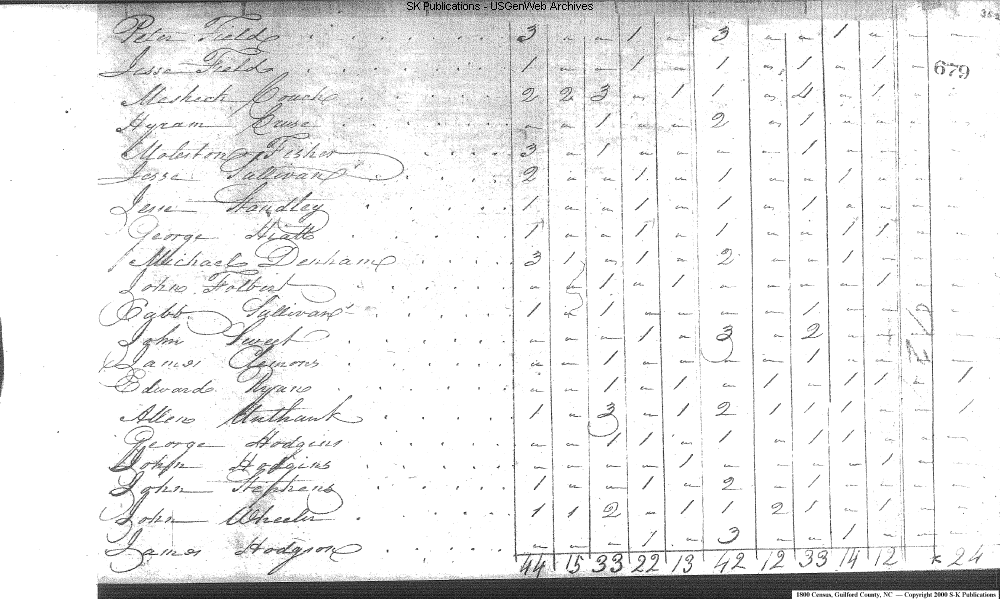 SK Publications - USGenWeb Archives
Peter Field 3 - - 1 - 3 - - 1 - - -
Jesse Field 1 - - 1 - 1 - 1 - 1 - 679
Meshech Couch 2 2 3 - 1 1 - 4 - 1 - -
Hyram - - 1 - - 2 - 1 - - - -
Fisher 3 - 1 - - - - 1 - - - -
Jesse Sullivan 2 - - 1 - 1 - - 1 - - -
Jesse Handley 1 - - 1 - 1 - 1 - - - -
George Hiatt 1 - - 1 - 1 - - 1 1 - -
Michael Denham 3 1 - 1 - 2 - - 1 - - -
John Folbert - - 1 - 1 - - - - 1 - -
Sullivan 1 - 1 - - - - 1 - - - -
John Sweet - - - 1 - 3 - 2 - - -
James Clemons - - 1 - - - - 1 - - - -
Edward Ryan - - 1 - 1 - 1 - 1 1 - 1
Allen Unthank 1 - 3 - 1 2 1 1 1 - - 1
George Hodgins - - 1 1 - 1 - 1 1 - - -
John Hodgins - - - - 1 - - - - 1 - -
John Stephens 1 - - 1 - 2 - 1 - - - -
John Wheeler 1 1 2 - 1 1 2 1 - 1 - -
James Hodgson - - - 1 - 3 - - 1 - - -
44 15 33 22 13 42 12 33 14 12 24
1800 Census, Guilford County, NC — Copyright 2000 S-K Publications